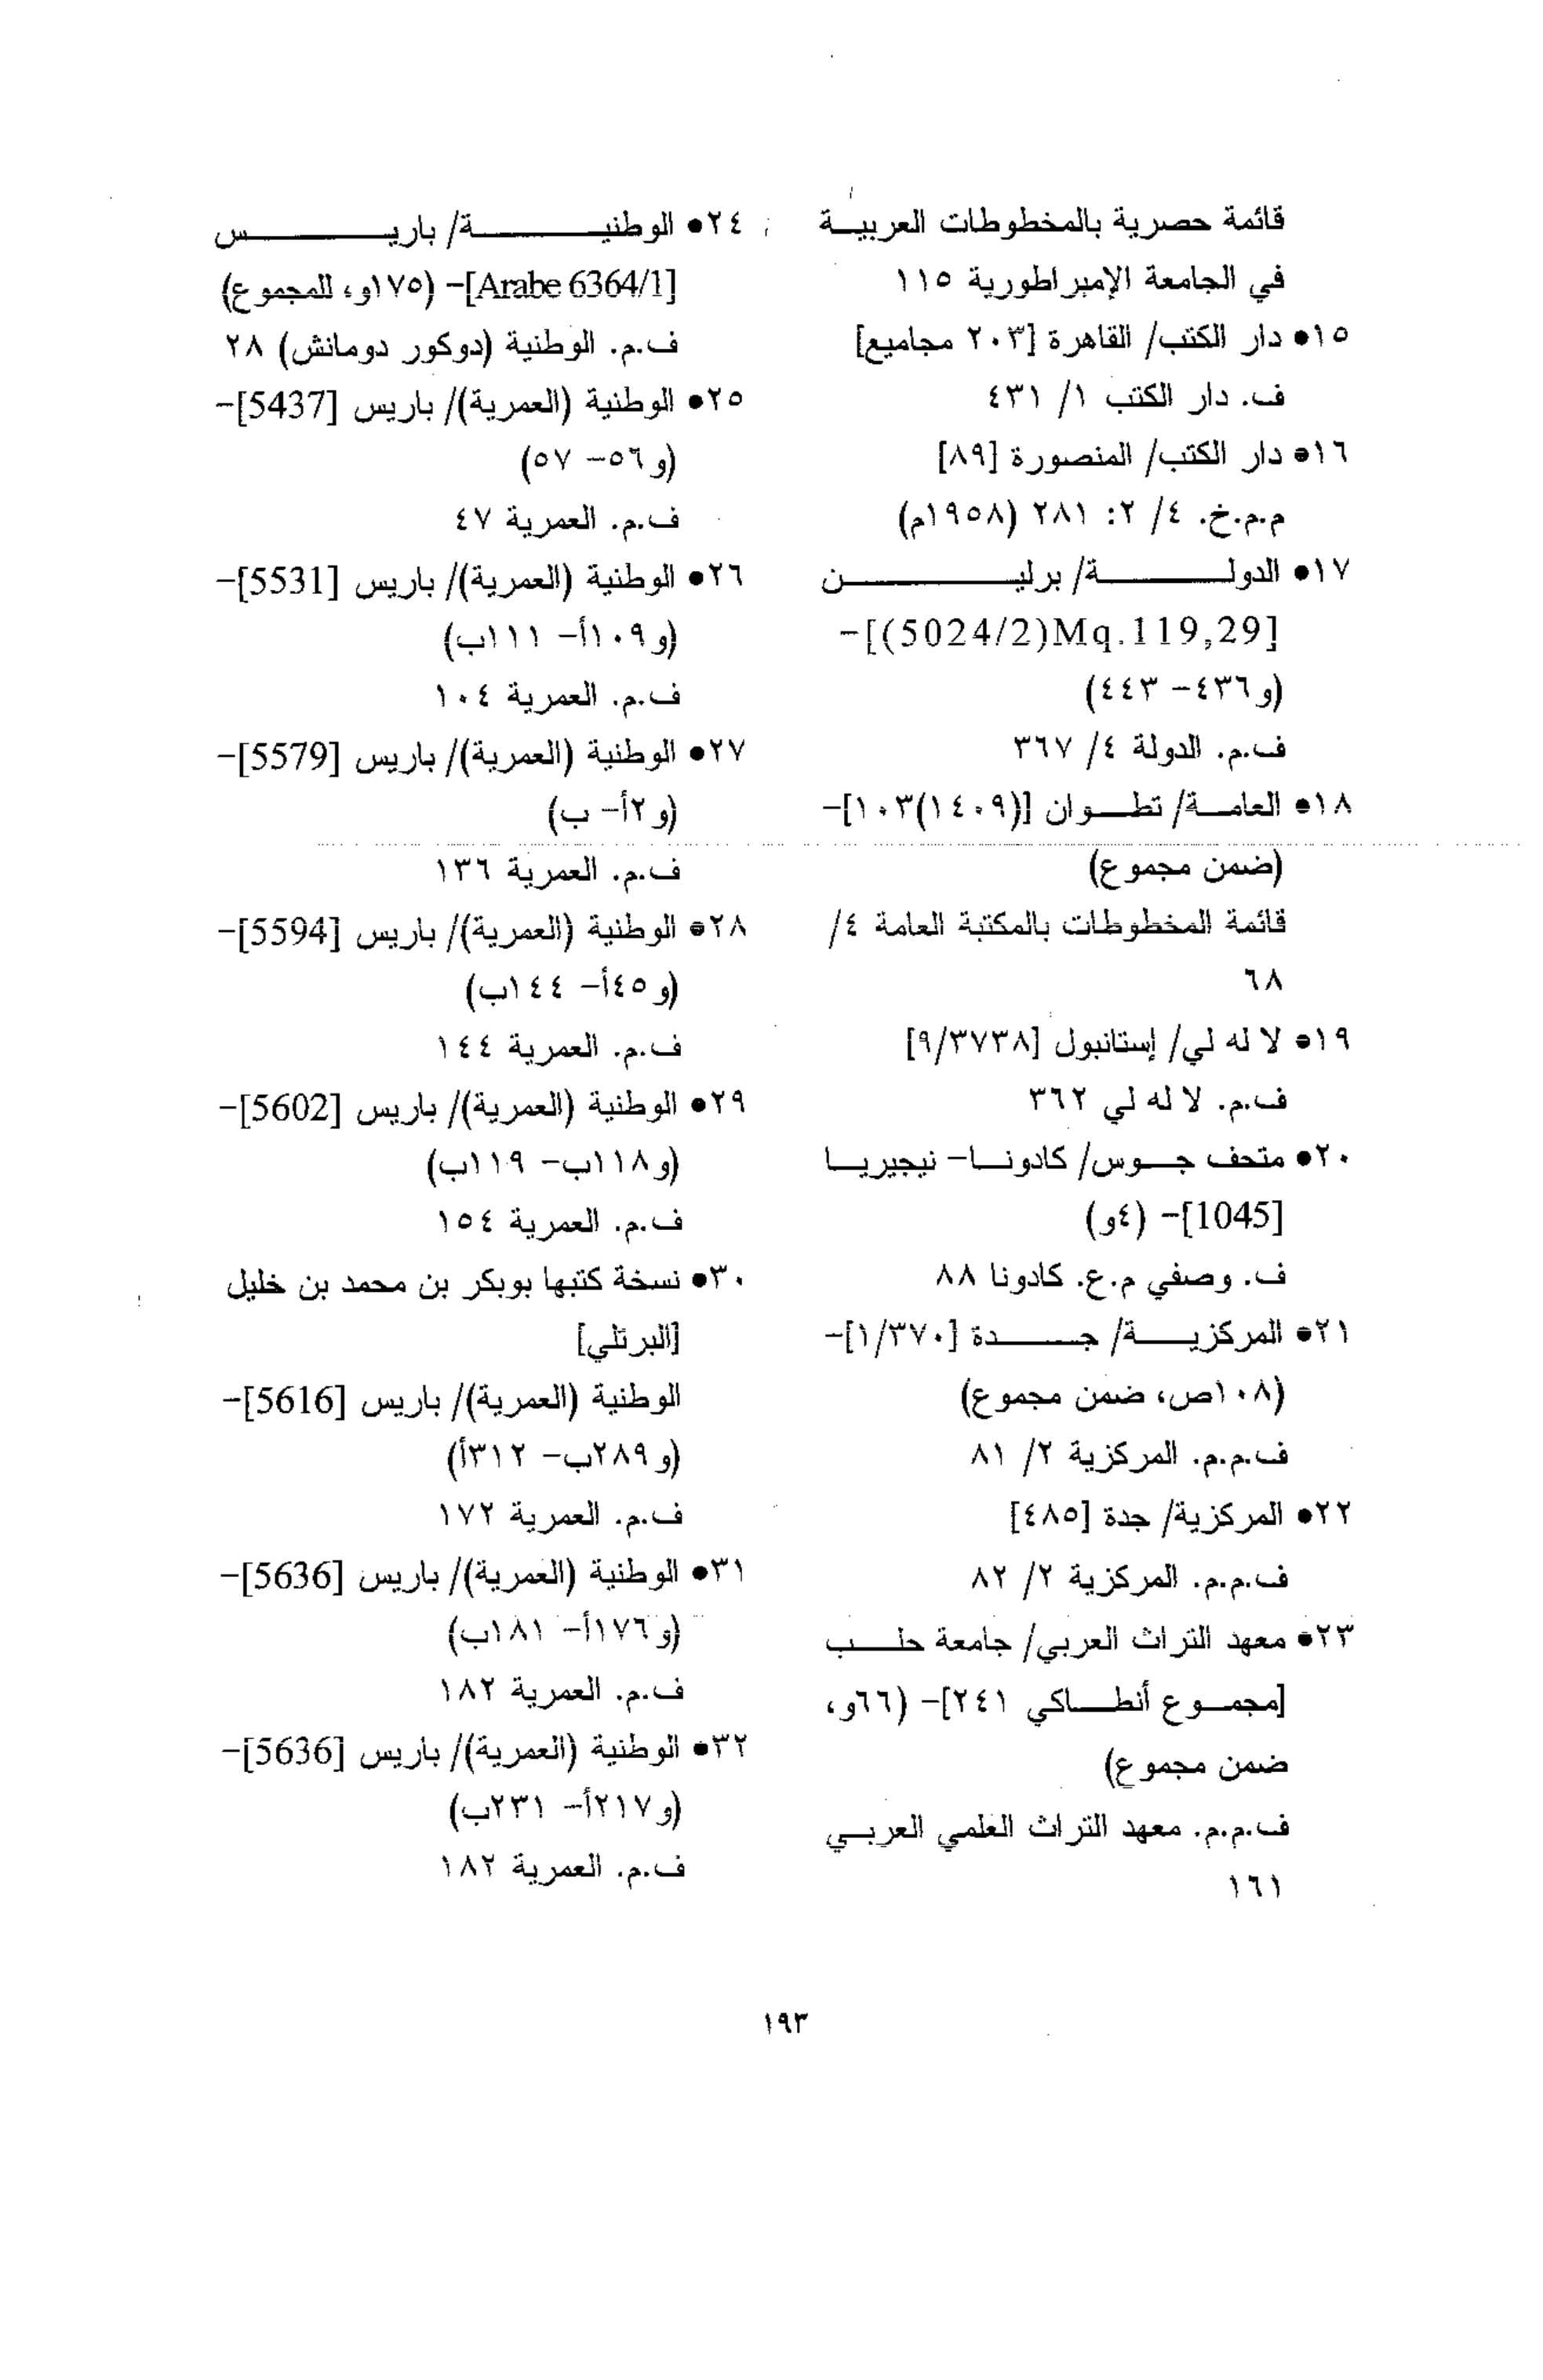 قائمة حصرية بالمخطوطات العربية
في الجامعة الإمبراطورية ١١٥
١٥• دار الكتب/ القاهرة [٢٠٣ مجاميع]
ف. دار الكتب ١/ ٤٣١
١٦• دار الكتب/ المنصورة [٨٩]
م.م.خ. ٤/ ٢: ٢٨١ (١٩٥٨م)
١٧• الدولة/ برلين
[Mq.119,29(5024/2)]-
(و٤٣٦- ٤٤٣)
ف.م. الدولة ٤/ ٣٦٧
١٨• العامة/ تطوان [(١٤٠٩)١٠٣]-
(ضمن مجموع)
قائمة المخطوطات بالمكتبة العامة ٤/
٦٨
١٩• لا له لي/ إستانبول [٩/٣٧٣٨]
ف.م. لا له لي ٣٦٢
٢٠• متحف جوس/ كادونا- نيجيريا
[1045]- (٤و)
ف. وصفي م.ع. كادونا ٨٨
٢١• المركزية/ جدة [١/٣٧٠]-
(١٠٨ص، ضمن مجموع)
ف.م.م. المركزية ٢/ ٨١
٢٢• المركزية/ جدة [٤٨٥]
ف.م.م. المركزية ٢/ ٨٢
٢٣• معهد التراث العربي/ جامعة حلب
[مجموع أنطاكي ٢٤١]- (٦٦و،
ضمن مجموع)
ف.م.م. معهد التراث العلمي العربي
١٦١
٢٤• الوطنية/ باريس
[Arabe 6364/1]- (١٧٥و، للمجموع)
ف.م. الوطنية (دوكور دومانش) ٢٨
٢٥• الوطنية (العمرية)/ باريس [5437]-
(و٥٦- ٥٧)
ف.م. العمرية ٤٧
٢٦• الوطنية (العمرية)/ باريس [5531]-
(و١٠٩أ- ١١١ب)
ف.م. العمرية ١٠٤
٢٧• الوطنية (العمرية)/ باريس [5579]-
(و٢أ- ب)
ف.م. العمرية ١٣٦
٢٨• الوطنية (العمرية)/ باريس [5594]-
(و٤٥أ- ١٤٤ب)
ف.م. العمرية ١٤٤
٢٩• الوطنية (العمرية)/ باريس [5602]-
(و١١٨ب- ١١٩ب)
ف.م. العمرية ١٥٤
٣٠• نسخة كتبها بوبكر بن محمد بن خليل
[البرتلي]
الوطنية (العمرية)/ باريس [5616]-
(و٢٨٩ب- ٣١٢أ)
ف.م. العمرية ١٧٢
٣١• الوطنية (العمرية)/ باريس [5636]-
(و١٧٦أ- ١٨١ب)
ف.م. العمرية ١٨٢
٣٢• الوطنية (العمرية)/ باريس [5636]-
(و٢١٧أ- ٢٣١ب)
ف.م. العمرية ١٨٢
١٩٣